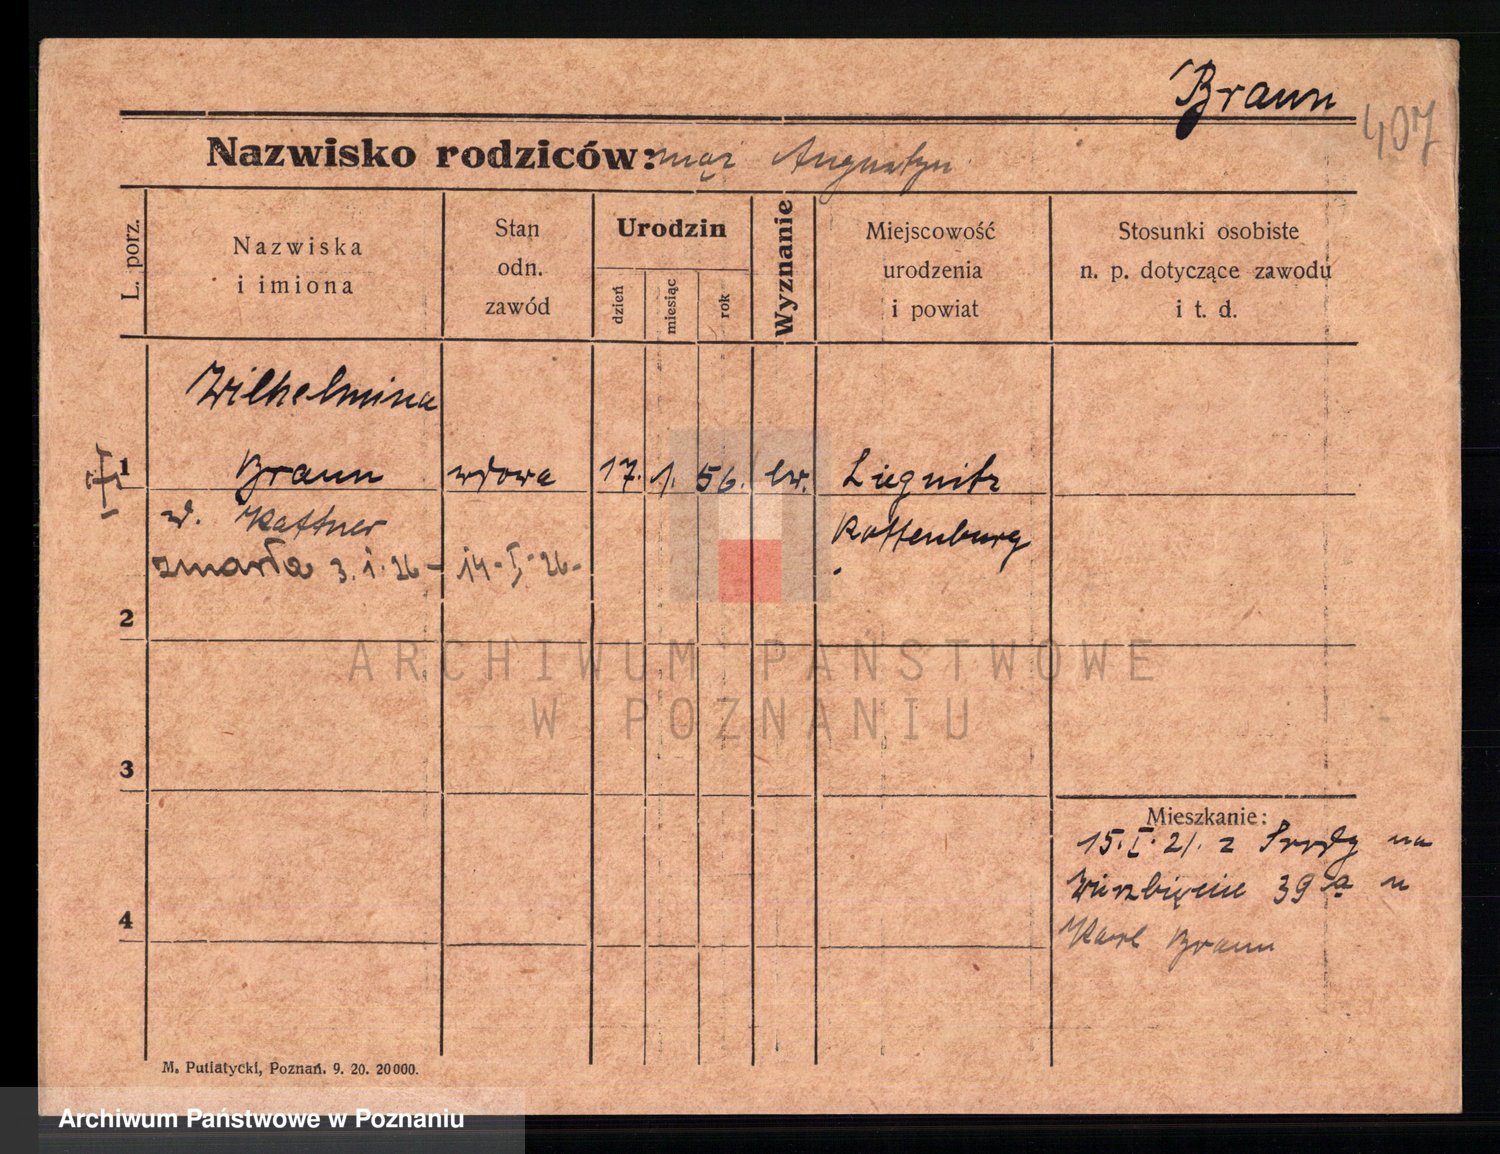 Braun
407
Nazwisko rodziców: mąż Augustyn
L. porz.
Nazwiska
i imiona
Stan
odn.
zawód
Urodzin
dzień
miesiąc
rok
Wyznanie
Miejscowość
urodzenia
i powiat
Stosunki osobiste
n. p. dotyczące zawodu
i t. d.
Wilhelmina
1 Braun wdowa 17. 1. 56. ew. Liegnitz
Kattner Rottenburg
zmarła 3. 1. 26 - 14. I. 26 -
2
3
4
Mieszkanie:
15. I. 21. z Środy na
Wierzbięcie 39a u
Karl Braun
M. Putiatycki, Poznań. 9. 20. 20000.
ARCHIWUM PAŃSTWOWE
W POZNANIU
Archiwum Państwowe w Poznaniu